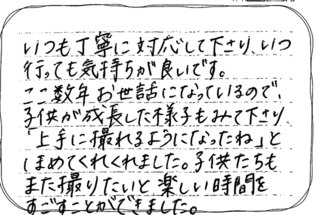 いつも丁寧に対応して下さり、いつ
行っても気持ちが良いです。
ここ数年お世話になっているので、
子供が成長した様子もみて下さり
「上手に撮れるようになったね」と
ほめてくれくれました。子供たちも
また撮りたいと楽しい時間を
すごすことができました。